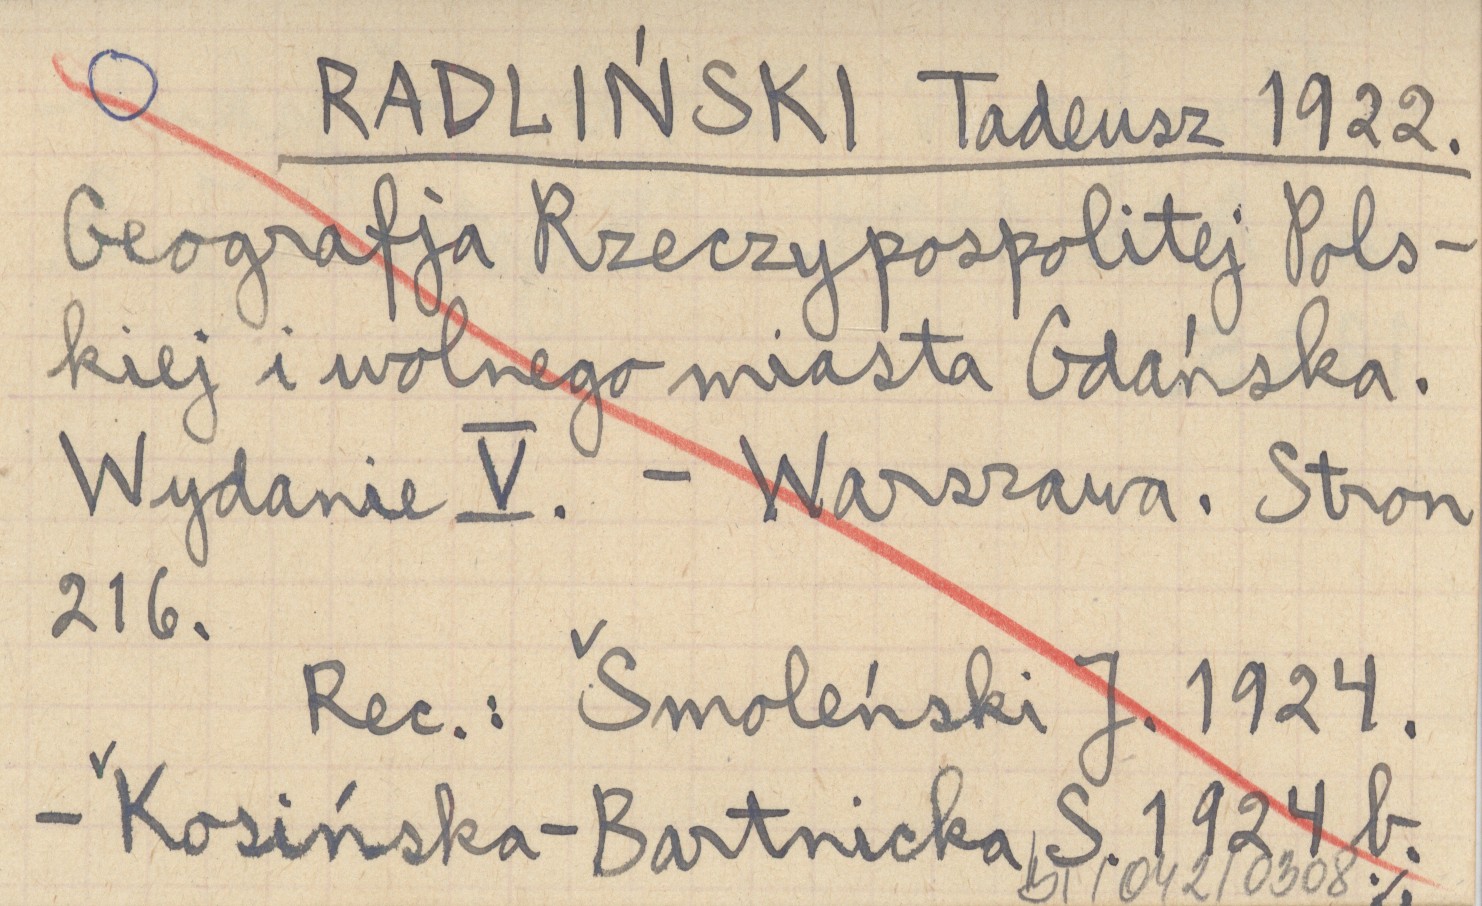 RADLIŃSKI Tadeusz 1922.
Geografja Rzeczypospolitej Pols-
kiej i wolnego miasta Gdańska.
Wydanie V. - Warszawa. Stron
216.
Rec.: Smoleński J. 1924.
- Kosińska-Bartnicka S. 1924 b.
BI/042/0308 ./.